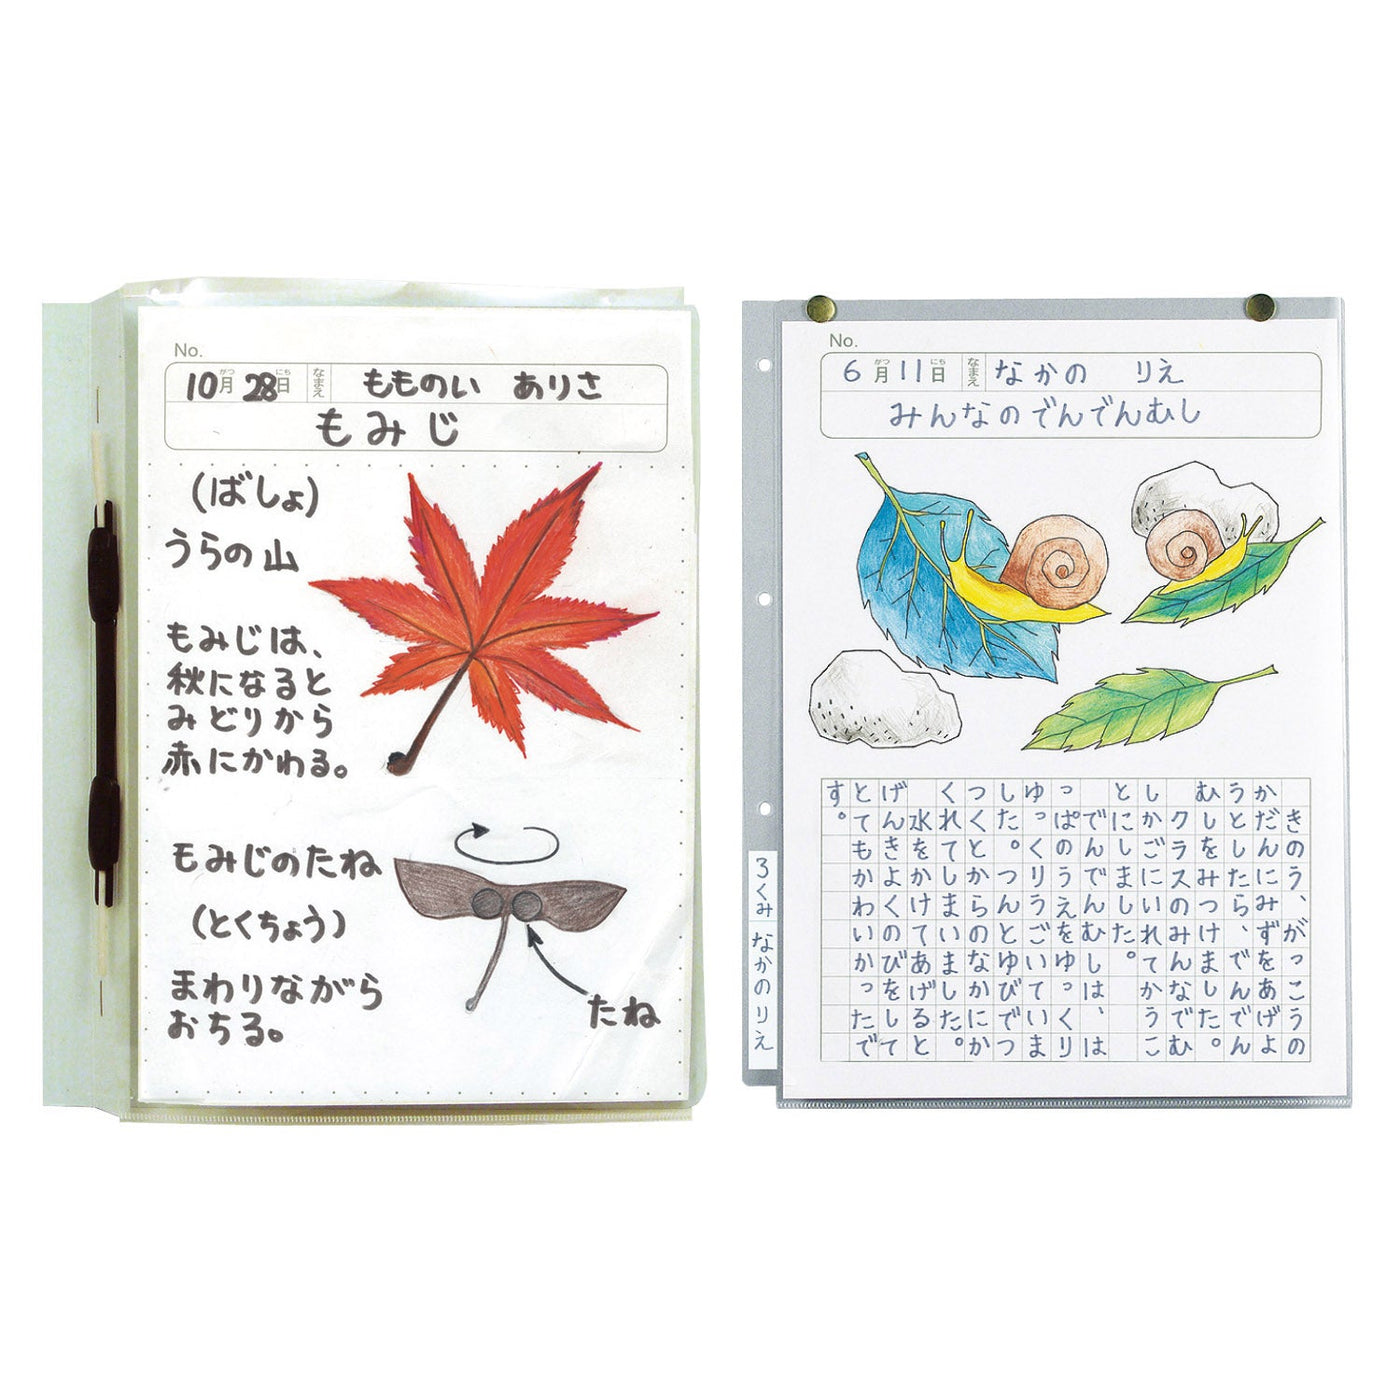 No.
10月28日 なまえ もものい ありさ
がつ にち
もみじ
(ばしょ)
うらの山
もみじは、
秋になると
みどりから
赤にかわる。
もみじのたね
(とくちょう)
まわりながら
おちる。
たね
No.
6月11日 なまえ なかの りえ
がつ にち
みんなのでんでんむし
きのう、がっこうの
かだんにみずをあげよ
うとしたら、でんでん
むしをみつけました。
クラスのみんなでむ
しかごにいれてかうこ
とにしました。
でんでんむしは、は
っぱのうえをゆっくり
ゆっくりうごいていま
した。つんとゆびでつ
つくとからのなかにか
くれてしまいました。
水をかけてあげると
げんきよくのびをして
とてもかわいかったで
す。
3くみ なかの りえ